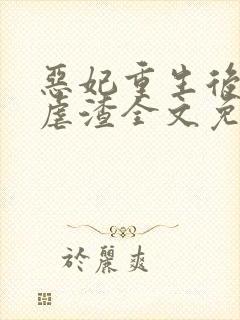 惡妃重生後
虐渣全文免
於麗爽